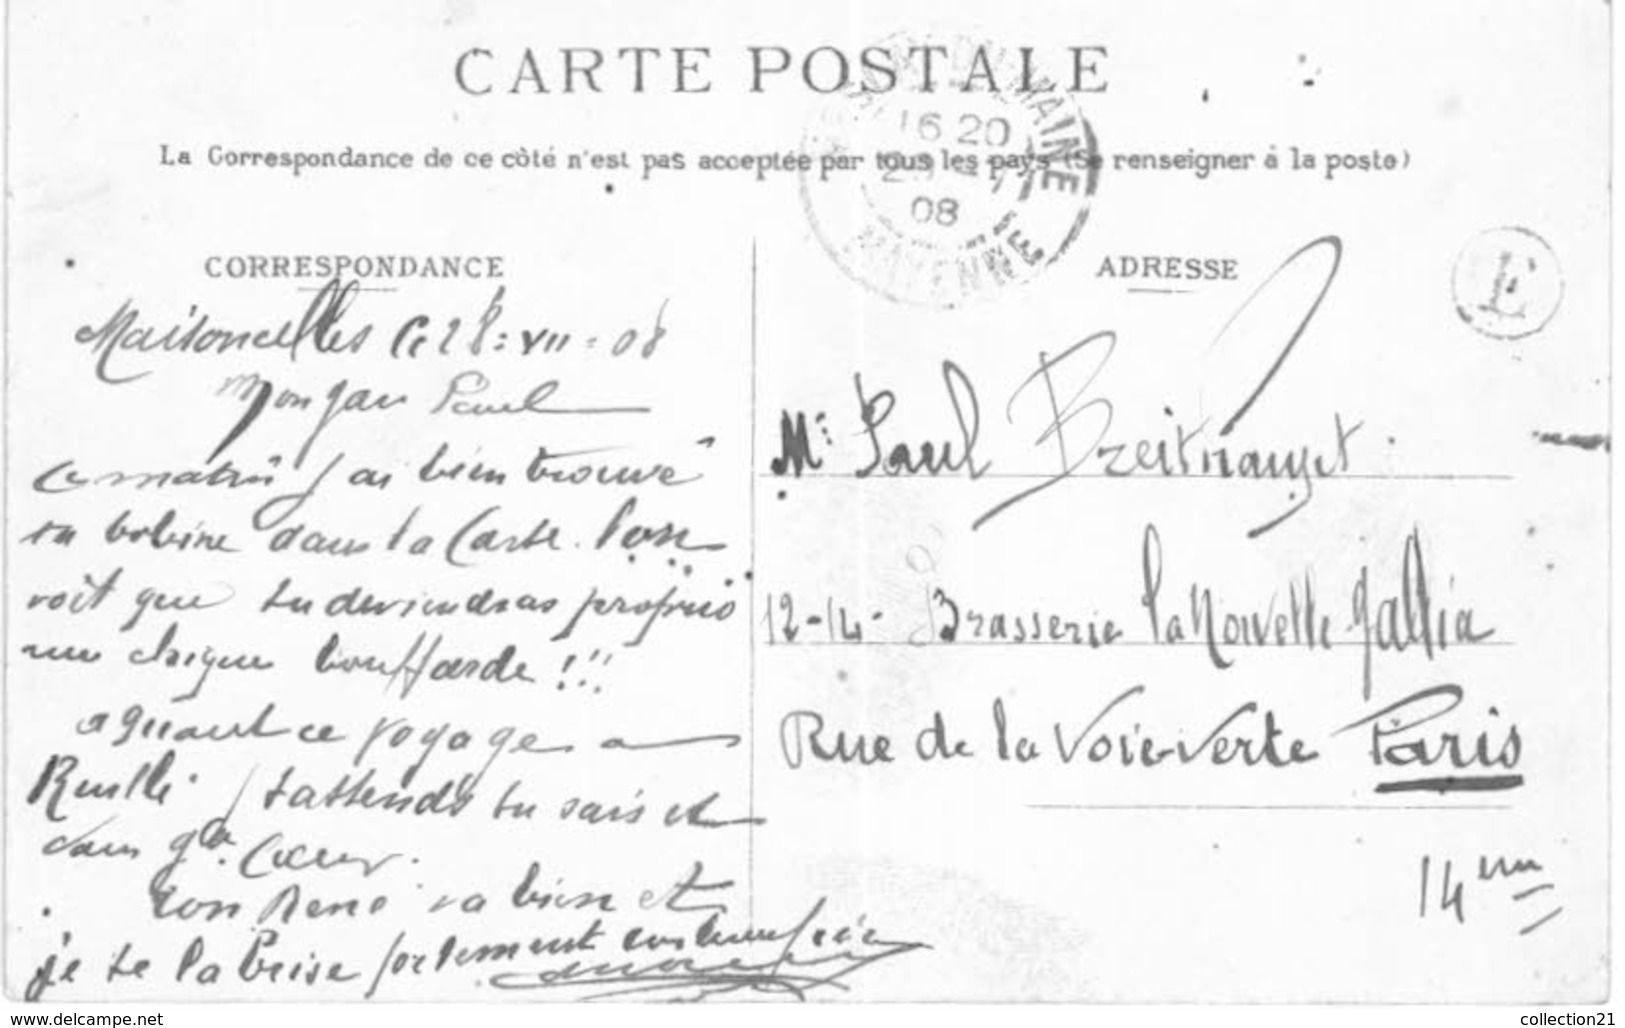 CARTE POSTALE
La Correspondance de ce côté n'est pas acceptée par tous les pays (Se renseigner à la poste)
16 20
08
MAYENNE
CORRESPONDANCE
Maisoncelles le 28 = VII = 08
Mon gau Paul
Ce matin j'ai bien trouvé
ta bobine dans la Carte. l'on
voit que tu deviendras
une bouffarde !!!
a quant ce voyage a
Ruillé / t'attends tu sais et
dans Coeur.
ton René va bien et
je te la brise fortement
ADRESSE
E
Mr Paul
12-14- Brasserie la Nouvelle Gallia
Rue de la Voie-Verte Paris
14eme
www.delcampe.net
collection21